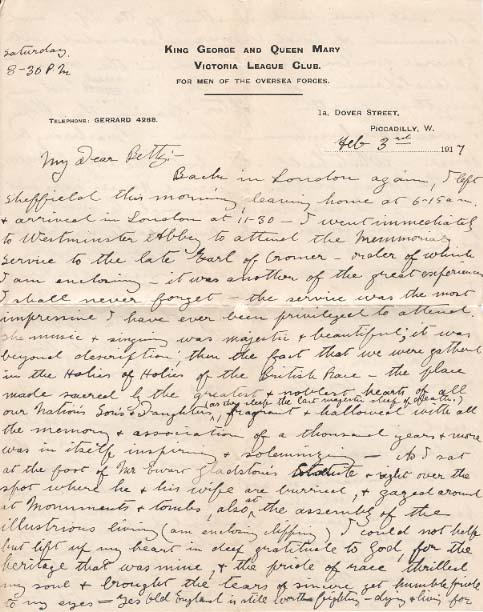 Saturday.
8-30 P.M
KING GEORGE AND QUEEN MARY
VICTORIA LEAGUE CLUB.
FOR MEN OF THE OVERSEA FORCES.
TELEPHONE: GERRARD 4288.
1A. DOVER STREET,
PICCADILLY, W.
Feb 3rd 1917
My Dear Betty:-
Back in London again, I left
Sheffield this morning leaving home at 6-15 am,
& arrived in London at 11-30 - I went immediately
to Westminster Abby to attend the Memmorial
Service to the late Earl of Cromer - order of which
I am enclosing - it was another of the great experiences
I shall never forget - the service was the most
impressive I have ever been privileged to attend.
The music & singing was majestic & beautiful; it was
beyond description; then the fact that we were gathered
in the Holies of Holies of the British Race - the place
made sacred by the greatest & noblest hearts of all
our Nations Sons & Daughters, (as they sleep the last majestic sleep of death:)
fragrant & hallowed with all
the memory & association of a thousand years & more
was in itself inspiring & solemnizing - As I sat
at the foot of Mr Ewart Gladstone's Statute & right over the
spot where he & his wife are burried, & gazed around
at Monuments & tombs, also at the assembly of the
illustrious living (am enclosing clipping) I could not help
but lift up my heart in deep gratitude to God, for the
heritage that was mine, & the pride of race thrilled
my soul & brought the tears of sincere yet humble pride
to my eyes - Yes old England is still worth fighting - dying & living for